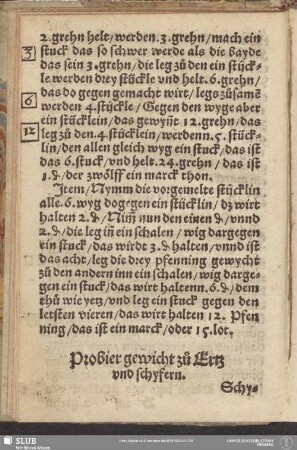 2.grehn helt/werden.3.grehn/mach ein
stuck das so schwer werde als die bayde
3 das sein 3.grehn/die leg zů den ein stück-
le.werden drey stückle vnd helt.6.grehn/
das do gegen gemacht wirt/legs zůsamẽ
6 werden 4.stückle/Gegen den wyge aber
ein stücklein/das gewynt 12.grehn/das
12 leg zů den.4.stücklein/werdenn.5.stück-
lin/den allen gleich wyg ein stuck/das ist
das 6.stuck/vnd helt.24.grehn/das ist
1.₰/der zwölff ein marck thon.
Item/Nymm die vorgemelte stücklin
alle.6.wyg dogegen ein stücklin/dz wirt
halten 2.₰/Nim̃ nun den einen ₰/vnnd
2.₰/die leg in̄ ein schalen/wig dargegen
ein stuck/das wirdt 3.₰ halten/vnnd ist
das acht/leg die drey pfenning gewycht
zů den andern inn ein schalen/wig darge-
gen ein stuck/das wirt haltenn.6.₰/dem
thů wie yetz/vnd leg ein stuck gegen den
letsten vieren/das wirt halten 12. Pfen
ning/das ist ein marck/oder 15.lot.
Probier gewicht zů Ertz
vnd schyfern.
Schy-
SLUB
Wir führen Wissen.